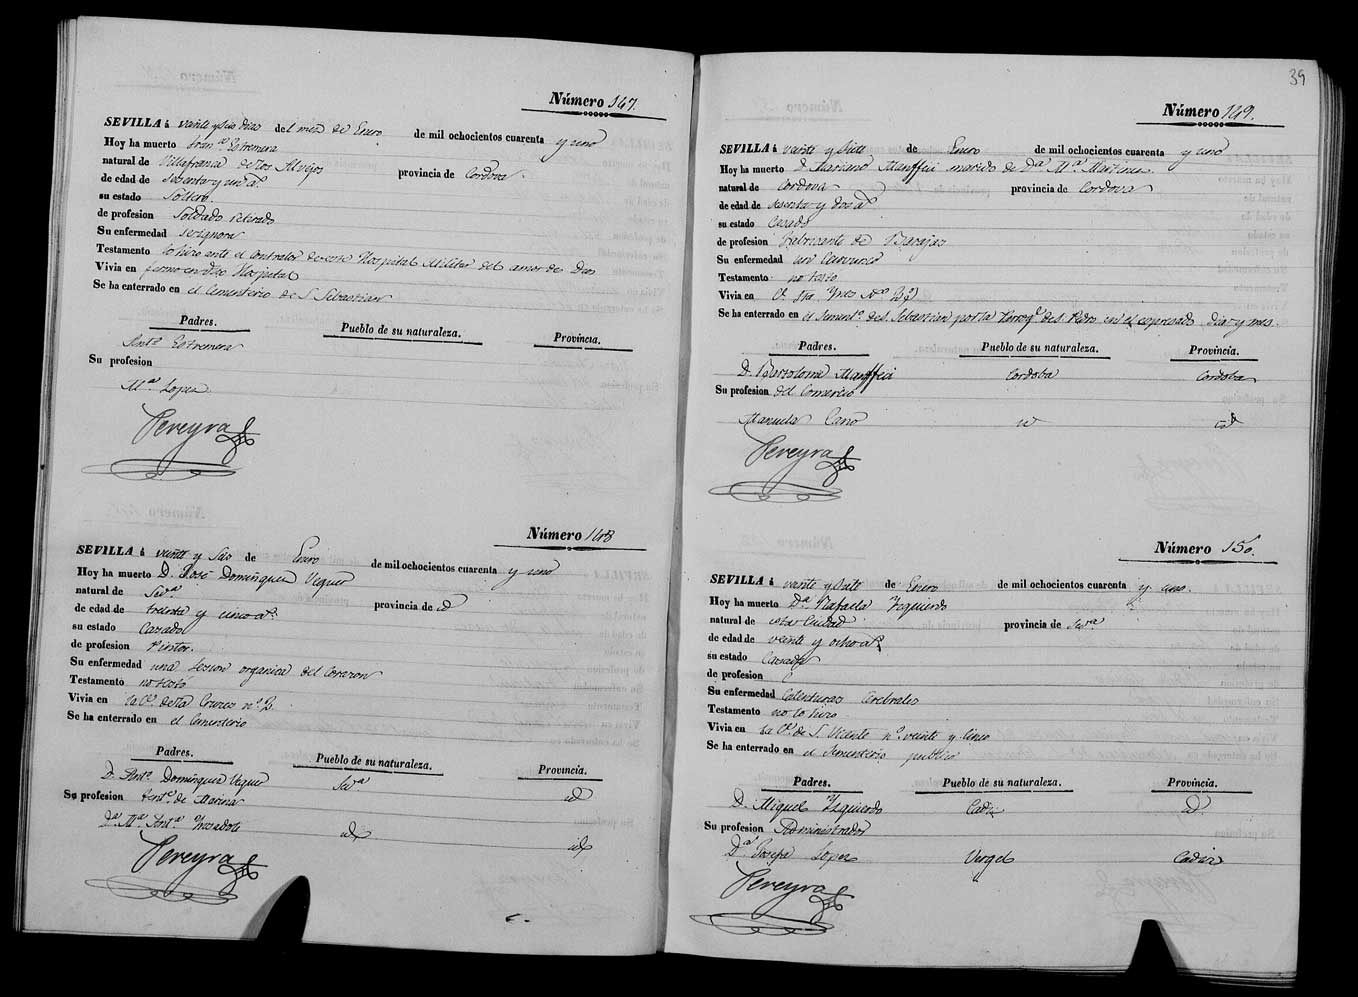 Número 147.
SEVILLA á veinte y seis dias del mes de Enero de mil ochocientos cuarenta y uno
Hoy ha muerto Fran.co Estremera
natural de Villafranca de los provincia de Cordova
de edad de Sesenta y un a.s
su estado Soltero.
de profesion Soldado retirado
Su enfermedad
Testamento lo hizo ante el Contralor de este Hospital Militar del amor de Dios
Vivia en Hospital
Se ha enterrado en el Cementerio de S. Sebastian
Padres. Pueblo de su naturaleza. Provincia.
Ant.o Estremera
Su profesion
M.a Lopez
Pereyra
Número 148
SEVILLA á veinte y seis de Enero de mil ochocientos cuarenta y uno
Hoy ha muerto D. José Dominguez Veguer
natural de Sev.a provincia de id
de edad de treinta y cinco a.s
su estado Casado
de profesion Pintor.
Su enfermedad una lesion organica del Corazon
Testamento no testó
Vivia en la C.e de la Cruces n.o
Se ha enterrado en el Cementerio
Padres. Pueblo de su naturaleza. Provincia.
D. Ant.o Dominguez Veguer Sev.a id
Su profesion Tent.e de Marina
D.a M.a Ant.a id id
Pereyra
39
Número 149.
SEVILLA á veinte y siete de Enero de mil ochocientos cuarenta y uno
Hoy ha muerto D. Mariano Manffei marido de D.a M.a Martinez
natural de Cordova provincia de Cordova
de edad de sesenta y dos a.s
su estado Casado
de profesion Fabricante de Barajas
Su enfermedad un Cancro
Testamento no testo
Vivia en C. Sta Ynes N.o
Se ha enterrado en el Sement.o de S. Sebastian por la Parroq.a de S. Pedro en el espresado dia y mes.
Padres. Pueblo de su naturaleza. Provincia.
D. Bartolome Manffei Cordoba Cordoba
Su profesion del Comercio
Manuela Cano id id
Pereyra
Número 150.
SEVILLA á veinte y siete de Enero de mil ochocientos cuarenta y uno.
Hoy ha muerto D.a Rafaela Yzquierdo
natural de esta Ciudad provincia de Sev.a
de edad de veinte y ocho a.s
su estado Casada
de profesion
Su enfermedad Calenturas Cerebrales
Testamento no lo hizo
Vivia en la C.e de S. Vicente n.o veinte y cinco
Se ha enterrado en el Sementerio publico
Padres. Pueblo de su naturaleza. Provincia.
D. Miguel Yzquierdo Cadiz id
Su profesion Administrador
D.a Josefa Lopez Verget Cadiz
Pereyra